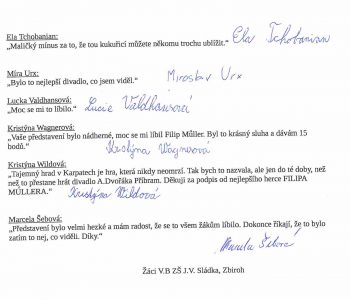 Ela Tchobanian:
„Maličký mínus za to, že tou kukuřicí můžete někomu trochu ublížit.“ Ela Tchobanian
Míra Urx:
„Bylo to nejlepší divadlo, co jsem viděl.“ Miroslav Urx
Lucka Valdhansová:
„Moc se mi to líbilo.“ Lucie Valdhansová
Kristýna Wagnerová:
„Vaše představení bylo nádherné, moc se mi líbil Filip Műller. Byl to krásný sluha a dávám 15
bodů.“ Kristýna Wagnerová
Kristýna Wildová:
„Tajemný hrad v Karpatech je hra, která nikdy neomrzí. Tak bych to nazvala, ale jen do té doby, než
než to přestane hrát divadlo A.Dvořáka Příbram. Děkuji za podpis od nejlepšího herce FILIPA
MŰLLERA.“ Kristýna Wildová
Marcela Šebová:
„Představení bylo velmi hezké a mám radost, že se to všem žákům líbilo. Dokonce říkají, že to bylo
zatím to nej, co viděli. Díky.“ Marcela Šebová
Žáci V.B ZŠ J.V. Sládka, Zbiroh